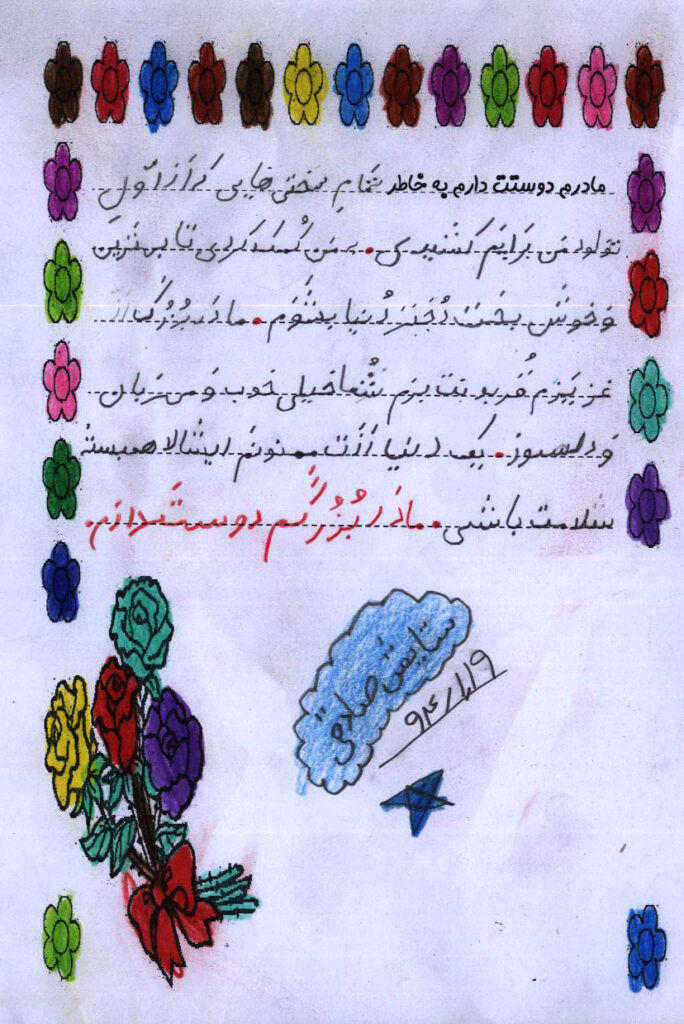 مادرم دوستت دارم به خاطر تمامِ سختی هایی که از اَوّلِ
تولد من بَرایَم کشیدی. به من کُمَک کردی تا بهترین
وَ خوش بخت دُختَرِ دُنیا بِشَوَم. مادَر بُزُرگ
عَزیزَم قُربونت بِرَم شُما خیلی خوب وَ مهربان
وَ دلسوز. یک دنیا اَزَت ممنونم ایشالا همیشه
سلامت باشی. مادَر بُزُرگَم دوستَت دارَم.
ستایش صداقی
94/1/19